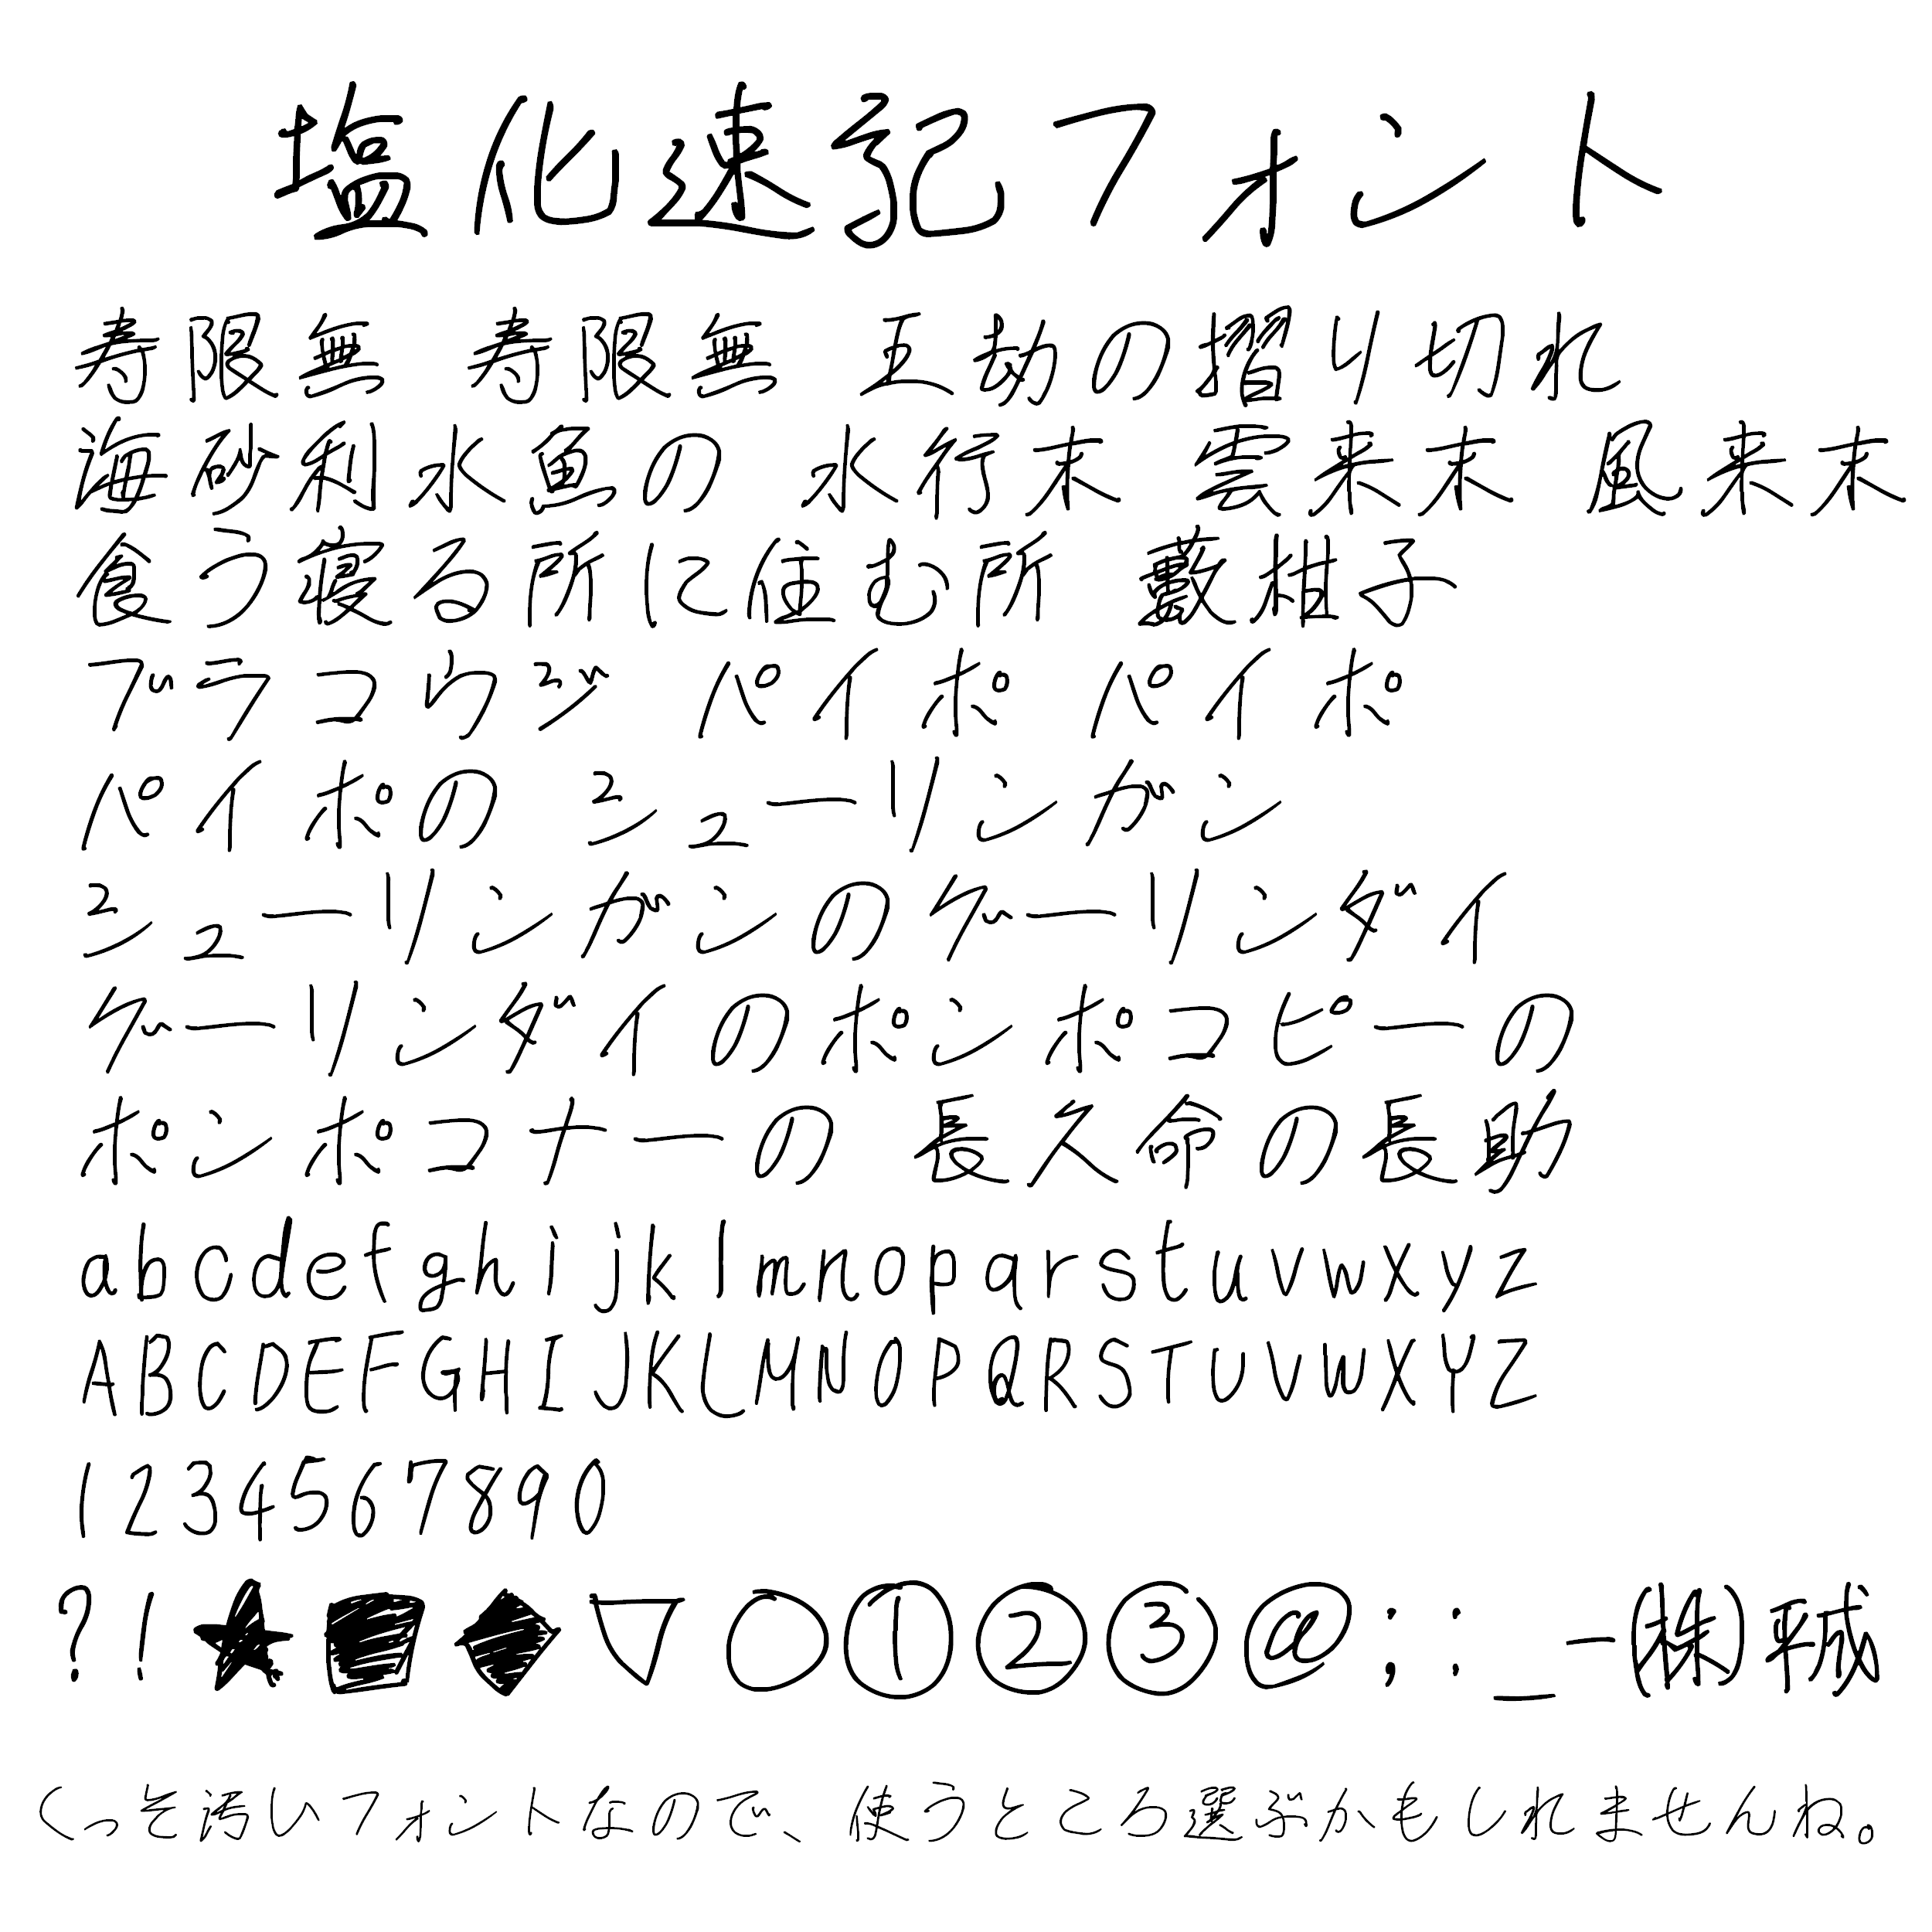 塩化速記フォント
寿限無 寿限無 五劫の摺り切れ
海砂利水魚の 水行末 雲来末 風来末
食う寝る所に住む所 藪柑子
ブラコウジ パイポ パイポ
パイポの シューリンガン
シューリンガンのグーリンダイ
グーリンダイのポンポコピーの
ポンポコナーの 長久命の長助
abcdefghijklmnopqrstuvwxyz
ABCDEFGHIJKLMNOPQRSTUVWXYZ
1234567890
?!★■◆▽○①②③@;:_-㈱平成
くっそ汚いフォントなので、使うところ選ぶかもしれませんね。